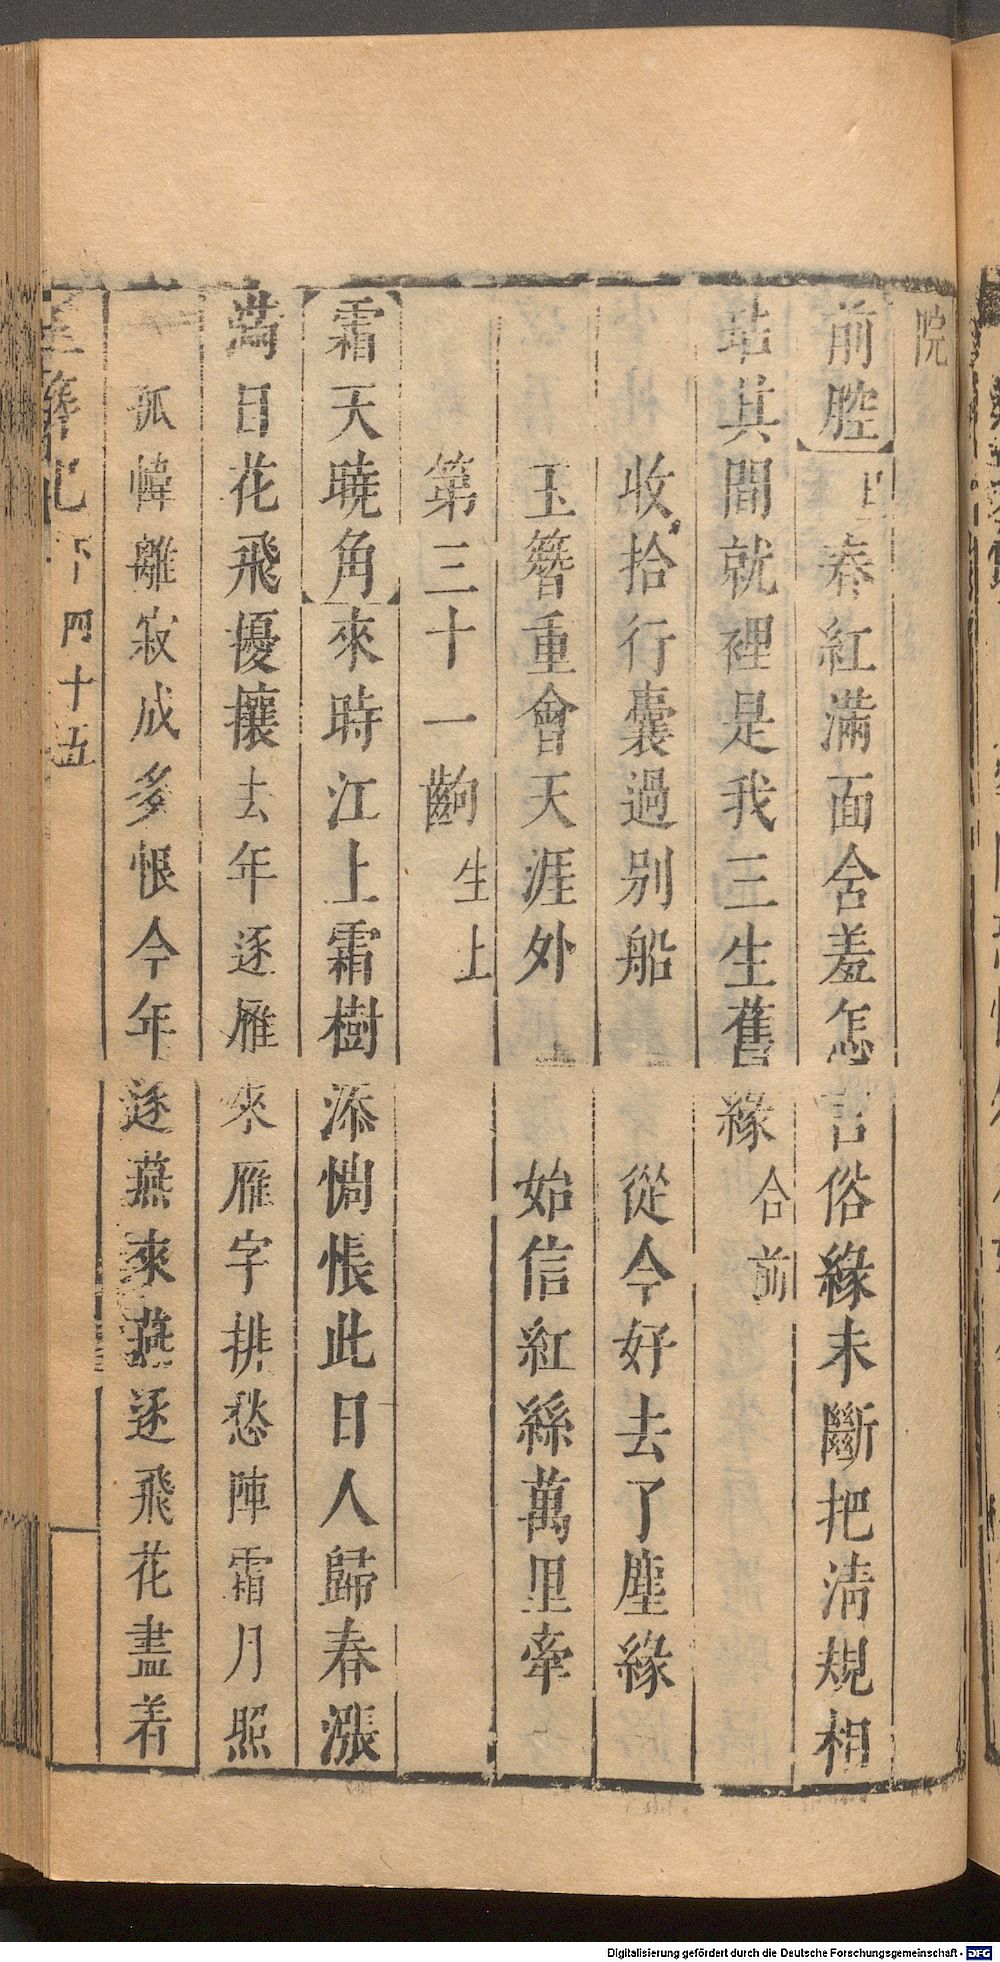 院
前腔】旦春紅滿面含羞怎言俗緣未斷把清規相
玷其間就裡是我三生舊緣合前
收拾行囊過別船　從今好去了塵緣
玉簪重會天涯外　始信紅絲萬里牽
第三十一齣　生上
【霜天曉角】來時江上霜樹添惆悵此日人歸春漲
滿目花飛擾攘去年逐雁來雁字排愁陣霜月照
孤幃離寂成多恨今年逐燕來燕逐飛花盡着
玉簪記下　四十五
Digitalisierung gefördert durch die Deutsche Forschungsgemeinschaft - DFG